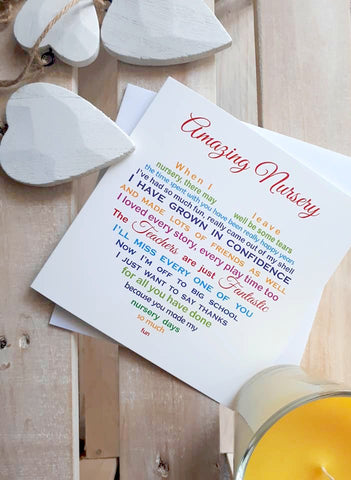 Amazing Nursery
When I leave
nursery there may well be some tears
the time spent with you have been really happy years
I've had so much fun, really came out of my shell
I HAVE GROWN IN CONFIDENCE
AND MADE LOTS OF FRIENDS AS WELL
I loved every story, every play time too
The Teachers are just Fantastic
I'LL MISS EVERY ONE OF YOU
NOW I'M OFF TO BIG SCHOOL
I JUST WANT TO SAY THANKS
for all you have done
because you made my
nursery days
so much
fun